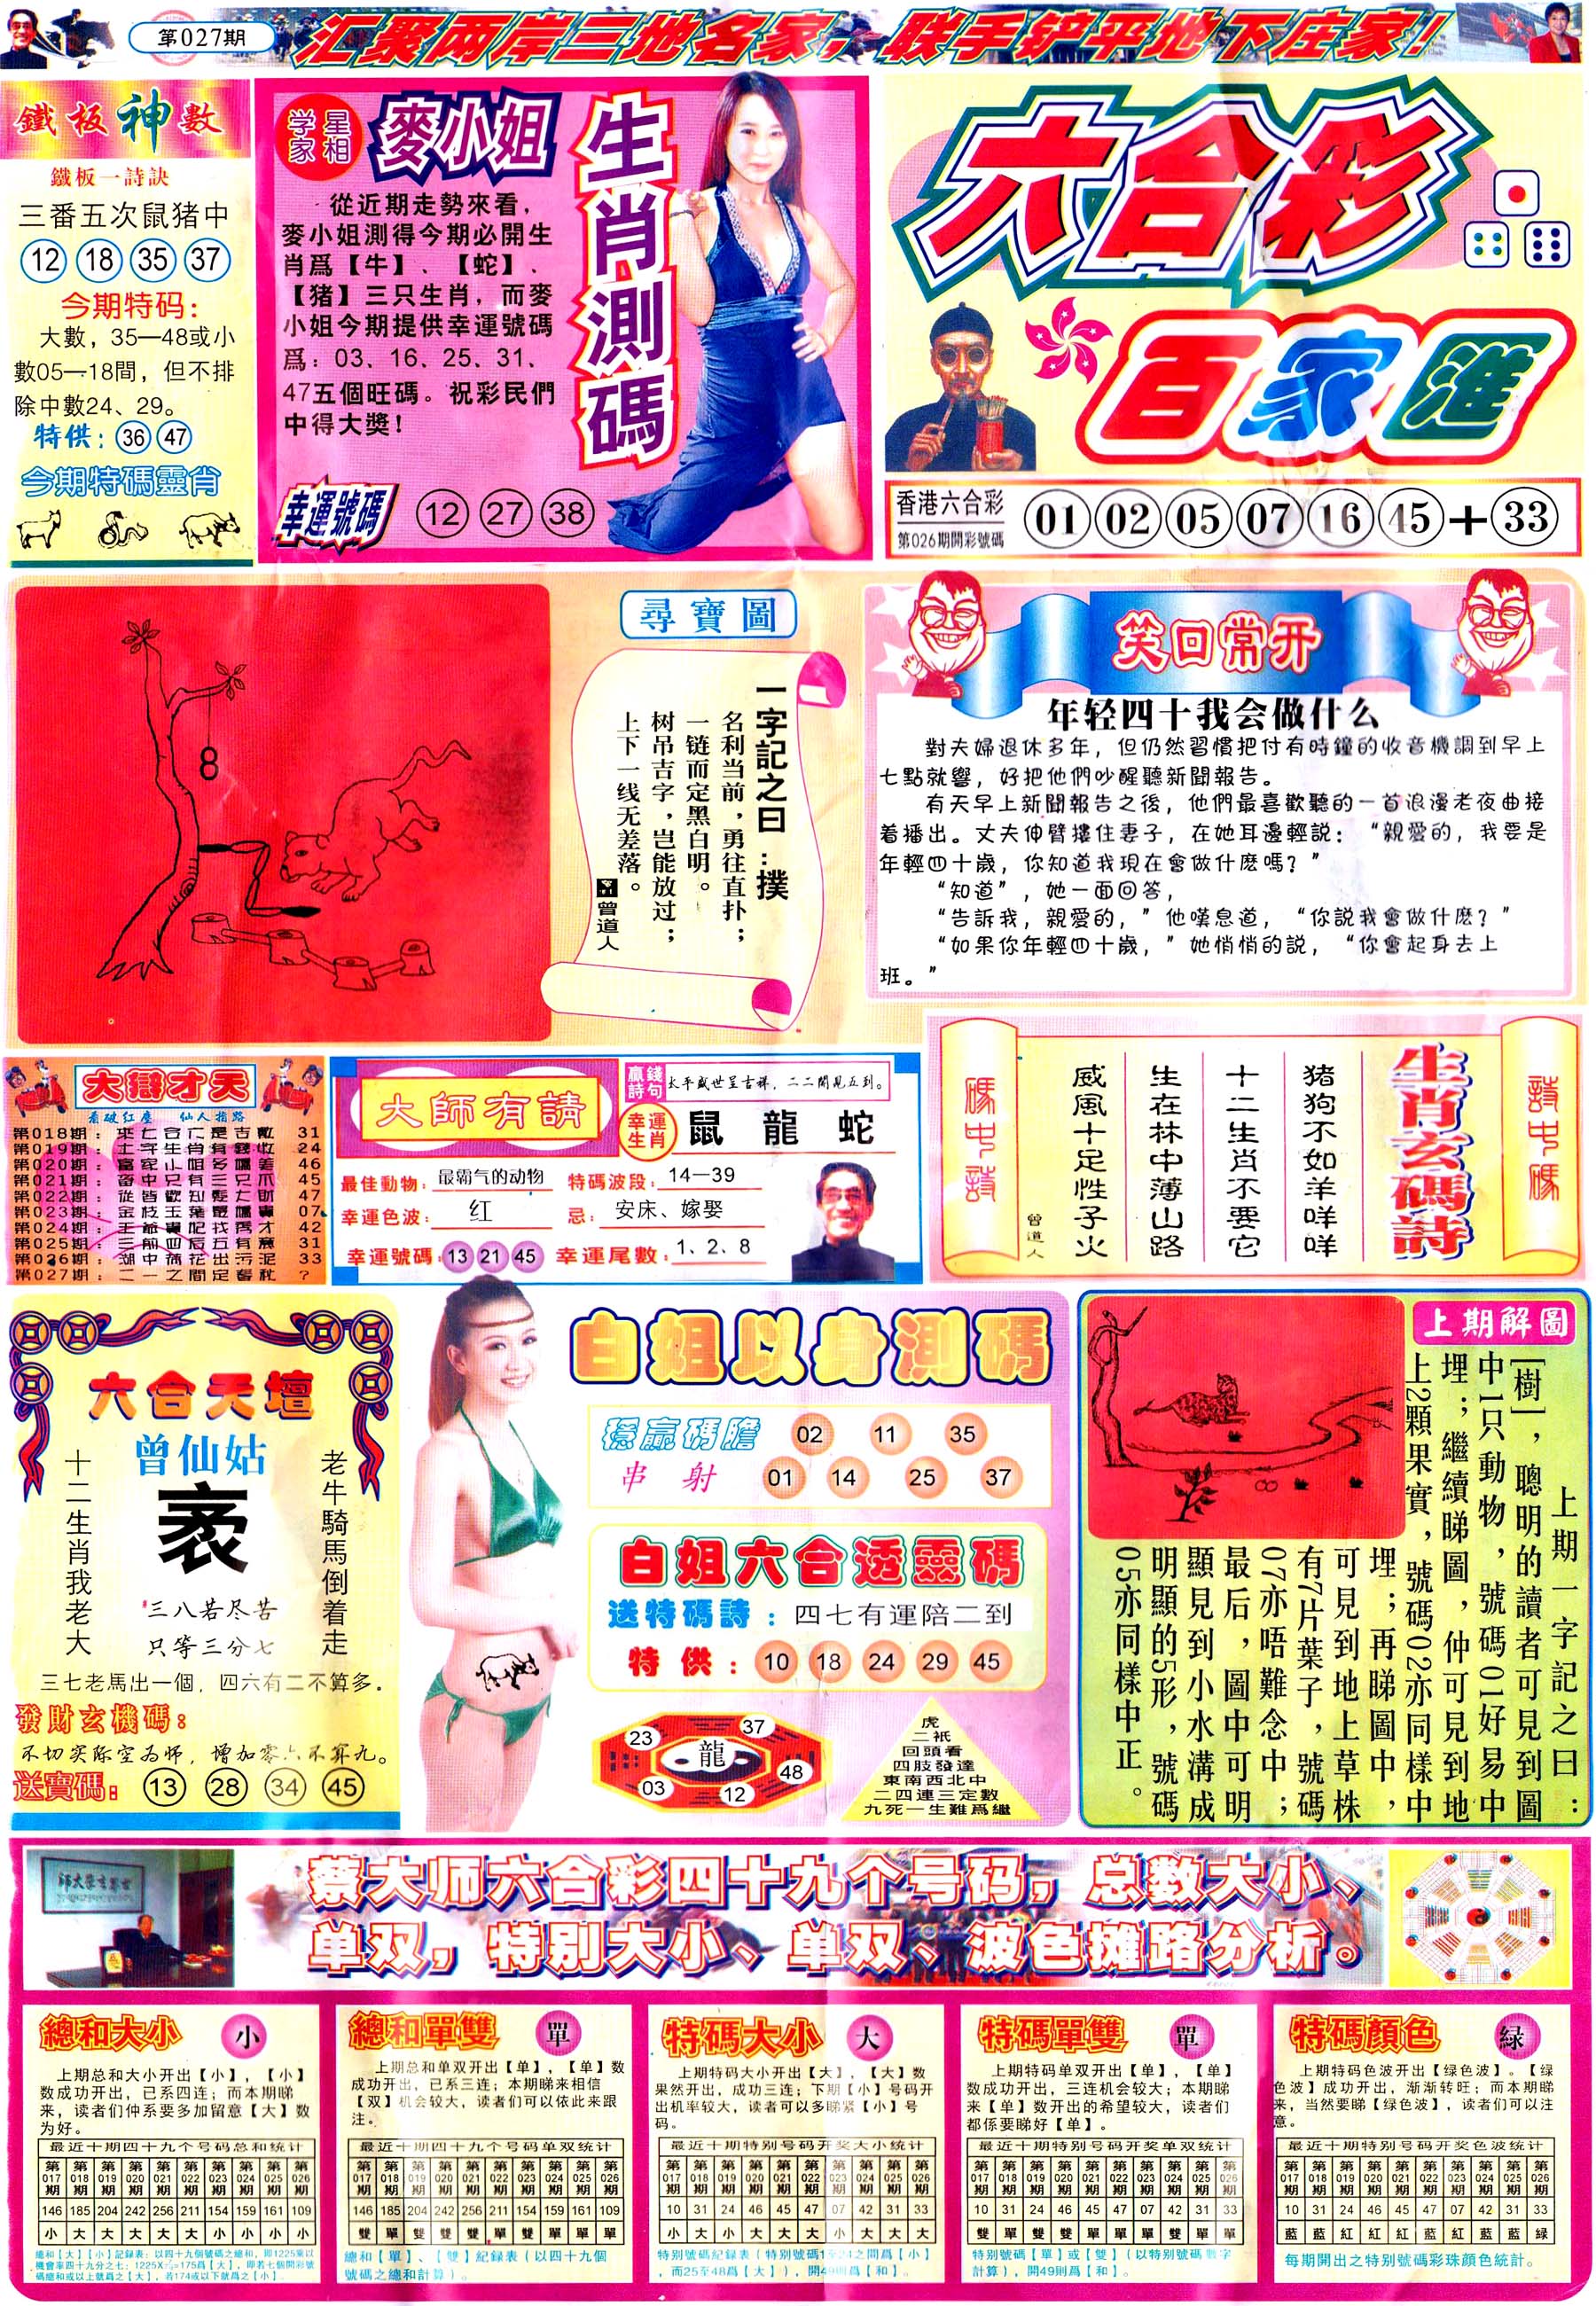 第027期
汇聚两岸三地名家，联手铲平地下庄家！
鐵板神數
鐵板一詩訣
三番五次鼠猪中
12 18 35 37
今期特码：
大數，35—48或小
數05—18間，但不排
除中數24、29。
特供：36 47
今期特碼靈肖
星相学家
麥小姐
生肖測碼
從近期走勢來看，
麥小姐測得今期必開生
肖爲【牛】、【蛇】、
【猪】三只生肖，而麥
小姐今期提供幸運號碼
爲：03、16、25、31、
47五個旺碼。祝彩民們
中得大獎！
幸運號碼 12 27 38
六合彩
百家匯
香港六合彩
第026期開彩號碼
01 02 05 07 16 45 + 33
8
尋寶圖
一字記之曰：撲
名利当前，勇往直扑；
一链而定黑白明。
树吊吉字，岂能放过；
上下一线无差落。
曾道人
笑口常开
年轻四十我会做什么
對夫婦退休多年，但仍然習慣把付有時鐘的收音機調到早上
七點就響，好把他們吵醒聽新聞報告。
有天早上新聞報告之後，他們最喜歡聽的一首浪漫老夜曲接
着播出。丈夫伸臂摟住妻子，在她耳邊輕説：“親愛的，我要是
年輕四十歲，你知道我現在會做什麽嗎？”
“知道”，她一面回答，
“告訴我，親愛的，”他嘆息道，“你説我會做什麽？”
“如果你年輕四十歲，”她悄悄的説，“你會起身去上
班。”
大辯才天
看破红塵 仙人指路
第018期： 31
第019期： 24
第020期： 46
第021期： 45
第022期： 47
第023期： 07
第024期： 42
第025期： 31
第026期： 33
第027期： ?
大師有請
贏錢詩句 太平盛世呈吉祥，二二開見五到。
幸運生肖 鼠 龍 蛇
最佳動物：最霸气的动物 特碼波段：14—39
幸運色波：红 忌：安床、嫁娶
幸運號碼：13 21 45 幸運尾數：1、2、8
詩中碼
生肖玄碼詩
猪狗不如羊咩咩
十二生肖不要它
生在林中薄山路
威風十足性子火
曾道人
碼中詩
六合天壇
曾仙姑
老牛騎馬倒着走
十二生肖我老大
三八若尽苦
只等三分七
三七老馬出一個，四六有二不算多。
發財玄機碼：
不切实际空为师，增加零六不算九。
送寶碼：13 28 34 45
白姐以身測碼
穩贏碼膽 02 11 35
串射 01 14 25 37
白姐六合透靈碼
送特碼詩：四七有運陪二到
特供：10 18 24 29 45
23 37 龍 48 03 12
虎
二祇
回頭看
四肢發達
東南西北中
二四連三定數
九死一生難爲繼
上期解圖
上期一字記之曰：
［樹］，聰明的讀者可見到圖
中1只動物，號碼01好易中
埋；繼續睇圖，仲可見到地
上2顆果實，號碼02亦同樣中
埋；再睇圖中，
可見到地上草株
有7片葉子，號碼
07亦唔難念中；
最后，圖中可明
顯見到小水溝成
明顯的5形，號碼
05亦同樣中正。
蔡大师六合彩四十九个号码，总数大小、
单双，特别大小、单双、波色摊路分析。
總和大小 小
上期总和大小开出【小】，【小】
数成功开出，已系四连；而本期睇
来，读者们仲系要多加留意【大】数
为好。
最近十期四十九个号码总和统计
第017期 第018期 第019期 第020期 第021期 第022期 第023期 第024期 第025期 第026期
146 185 204 242 256 211 154 159 161 109
小 大 大 大 大 大 小 小 小 小
總和【大】【小】記録表：以四十九個號碼之總和，即1225乘以
機會率四十九分之七：1225X 7/49=175爲【大】，即若七個開彩號
碼總和或以上就爲之【大】，若174或以下就爲之【小】。
總和單雙 單
上期总和单双开出【单】，【单】数
成功开出，已系三连；本期睇来相信
【双】机会较大，读者们可以依此来跟
注。
最近十期四十九个号码单双统计
第017期 第018期 第019期 第020期 第021期 第022期 第023期 第024期 第025期 第026期
146 185 204 242 256 211 154 159 161 109
雙 單 雙 雙 雙 單 雙 單 單 單
總和【單】、【雙】紀録表（以四十九個
號碼之總和計算）。
特碼大小 大
上期特码大小开出【大】，【大】数
果然开出，成功三连；下期【小】号码开
出机率较大，读者可以多睇紧【小】号
码。
最近十期特别号码开奖大小统计
第017期 第018期 第019期 第020期 第021期 第022期 第023期 第024期 第025期 第026期
10 31 24 46 45 47 07 42 31 33
小 大 小 大 大 大 小 大 大 大
特别號碼紀録表（特别號碼1至24之間爲【小】
，而25至48爲【大】），開49則爲【和】。
特碼單雙 單
上期特码单双开出【单】，【单】
数成功开出，三连机会较大；本期睇
来【单】数开出的希望较大，读者们
都係要睇好【单】。
最近十期特别号码开奖单双统计
第017期 第018期 第019期 第020期 第021期 第022期 第023期 第024期 第025期 第026期
10 31 24 46 45 47 07 42 31 33
雙 單 雙 雙 單 單 單 雙 單 單
特别號碼【單】或【雙】（以特别號碼數字
計算），開49則爲【和】。
特碼顏色 緑
上期特码色波开出【绿色波】。【绿
色波】成功开出，渐渐转旺；而本期睇
来，当然要睇【绿色波】，读者们可以注
意。
最近十期特别号码开奖色波统计
第017期 第018期 第019期 第020期 第021期 第022期 第023期 第024期 第025期 第026期
10 31 24 46 45 47 07 42 31 33
藍 藍 紅 紅 紅 藍 紅 藍 藍 緑
每期開出之特别號碼彩珠顏色統計。